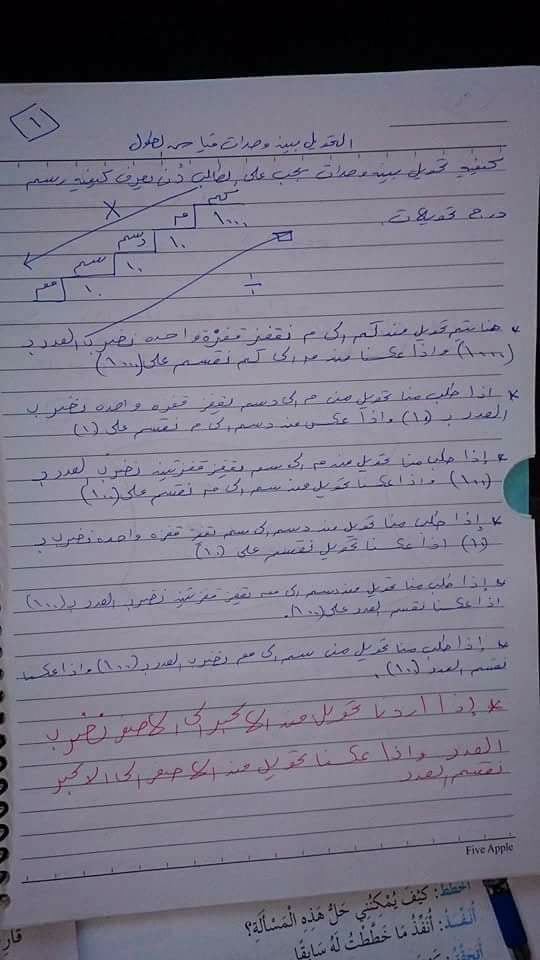 ١
التحويل بين وحدات قياس الطول
كيفية تحويل بين وحدات يجب على الطالب أن يعرف كيفية رسم
درج تحويلات
كم
م
١٠٠٠
دسم
١٠
سم
١٠
ملم
١٠
X
÷
* هنا يتم تحويل من كم الى م نقفز قفزة واحده نضرب العدد ب
(١٠٠٠) واذا عكسنا من م الى كم نقسم على (١٠٠٠)
* إذا طلب منا تحويل من م الى دسم نقفز قفزه واحده نضرب
العدد ب (١٠) واذا عكس من دسم الى م نقسم على (١٠)
* إذا طلب منا تحويل من م الى سم نقفز قفزتين نضرب العدد ب
(١٠٠) واذا عكسنا تحويل من سم الى م نقسم على (١٠٠)
* إذا طلب منا تحويل من دسم الى سم نقفز قفزه واحده نضرب ب
(١٠) اذا عكسنا تحويل نقسم على (١٠)
* إذا طلب منا تحويل من دسم الى ملم نقفز قفزتين نضرب العدد ب (١٠٠)
اذا عكسنا نقسم العدد على (١٠٠).
* إذا طلب منا تحويل من سم الى ملم نضرب العدد ب (١٠) واذا عكسنا
نقسم العدد (١٠).
* إذا أردنا تحويل من الاكبر الى الاصغر نضرب
العدد واذا عكسنا تحويل من الاصغر الى الاكبر
نقسم العدد
Five Apple
أخطط: كَيْفَ يُمْكِنُنِي حَلُّ هَذِهِ الْمَسْأَلَةِ؟
أُنَفِّذُ: أُنَفِّذُ مَا خَطَّطْتُ لَهُ سَابِقًا
أَتَحَقَّقُ: